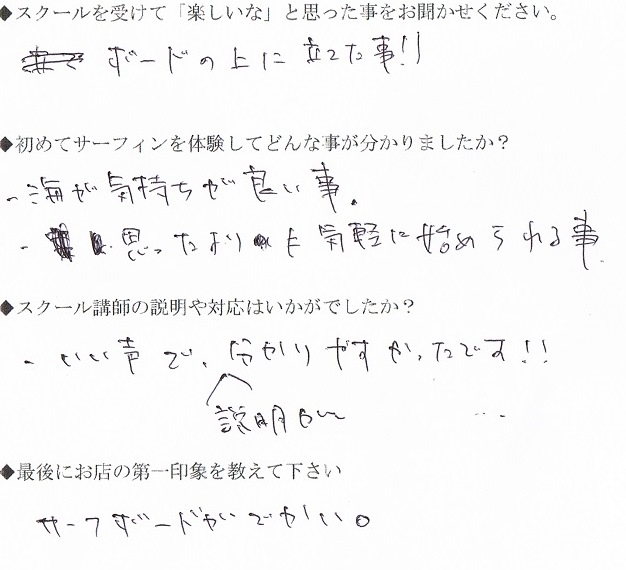 ◆スクールを受けて「楽しいな」と思った事をお聞かせください。
ボードの上に立てた事!!
◆初めてサーフィンを体験してどんな事が分かりましたか？
- 海が気持ちが良い事.
- 思ったよりも気軽に始められる事.
◆スクール講師の説明や対応はいかがでしたか？
- いい声で、分かりやすかったです!!
説明が
...
◆最後にお店の第一印象を教えて下さい
サーフボードがいでかい。